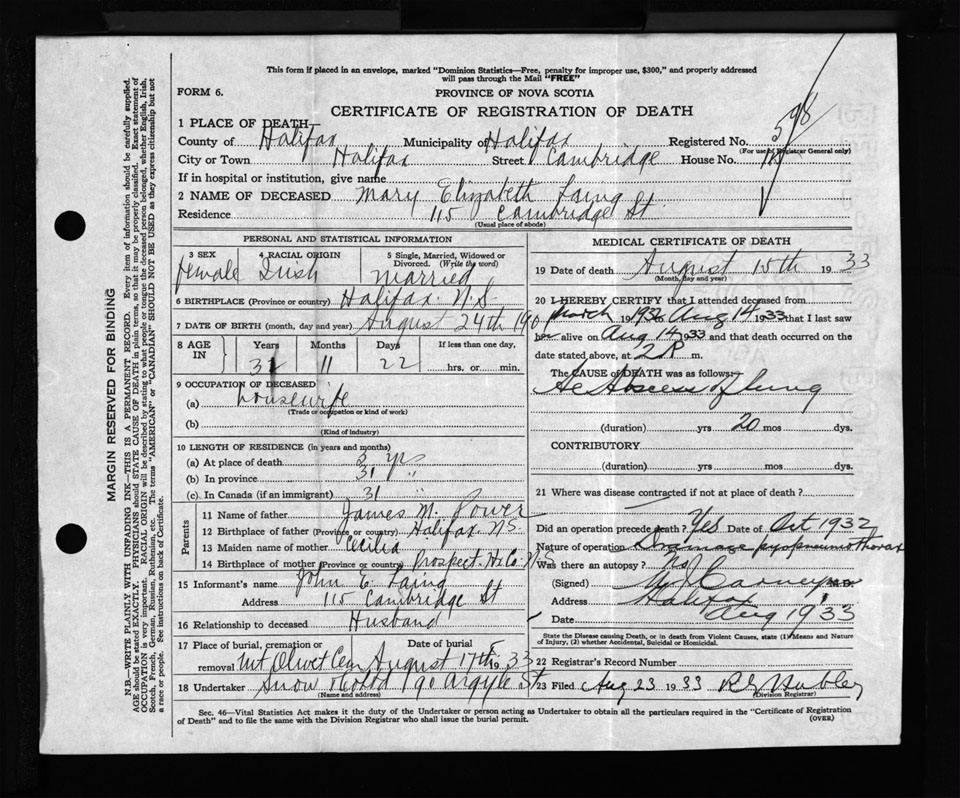 This form if placed in an envelope, marked "Dominion Statistics—Free, penalty for improper use, $300," and properly addressed
will pass through the Mail "FREE"
FORM 6.
PROVINCE OF NOVA SCOTIA
CERTIFICATE OF REGISTRATION OF DEATH
598
1 PLACE OF DEATH—
County of Halifax Municipality of Halifax Registered No.
(For use of Registrar General only)
City or Town Halifax Street Cambridge House No. 115
If in hospital or institution, give name
2 NAME OF DECEASED Mary Elizabeth Laing
Residence 115 Cambridge St.
(Usual place of abode)
PERSONAL AND STATISTICAL INFORMATION
3 SEX 4 RACIAL ORIGIN 5 Single, Married, Widowed or
Divorced. (Write the word)
female Irish married
6 BIRTHPLACE (Province or country) Halifax N.S.
7 DATE OF BIRTH (month, day and year) August 24th 190
8 AGE IN Years Months Days If less than one day,
31 11 22 hrs. or min.
9 OCCUPATION OF DECEASED
(a) housewife
(Trade or occupation or kind of work)
(b)
(Kind of industry)
10 LENGTH OF RESIDENCE (in years and months)
(a) At place of death 3 yrs
(b) In province 31 "
(c) In Canada (if an immigrant) 31 "
Parents
11 Name of father James M. Power
12 Birthplace of father (Province or country) Halifax N.S.
13 Maiden name of mother Cecilia
14 Birthplace of mother (Province or country) Prospect Hx. Co. N.S.
15 Informant's name John E. Laing
Address 115 Cambridge St
16 Relationship to deceased Husband
17 Place of burial, cremation or Date of burial
removal Mt Olivet Cem August 17th 1933
18 Undertaker Snow & Co Ltd 90 Argyle St
(Name and address)
MEDICAL CERTIFICATE OF DEATH
19 Date of death August 15th 1933
(Month, day and year)
20 I HEREBY CERTIFY that I attended deceased from
March 1932 to Aug 14 1933 that I last saw
her alive on Aug 14 1933 and that death occurred on the
date stated above, at 2 P m.
The CAUSE of DEATH was as follows:
Abscess of lung
(duration) yrs 20 mos dys.
CONTRIBUTORY
(duration) yrs. mos. dys.
21 Where was disease contracted if not at place of death?
Did an operation precede death? Yes Date of Oct 1932
Nature of operation Drainage pyopneumothorax
Was there an autopsy? No
(Signed) Carney M.D.
Address Halifax
Date Aug 1933
State the Disease causing Death, or in death from Violent Causes, state (1) Means and Nature
of Injury, (2) whether Accidental, Suicidal or Homicidal.
22 Registrar's Record Number
23 Filed Aug 23 1933 Hubley
(Division Registrar)
Sec. 46—Vital Statistics Act makes it the duty of the Undertaker or person acting as Undertaker to obtain all the particulars required in the "Certificate of Registration
of Death" and to file the same with the Division Registrar who shall issue the burial permit.
(OVER)
MARGIN RESERVED FOR BINDING
N.B.—WRITE PLAINLY WITH UNFADING INK—THIS IS A PERMANENT RECORD. Every item of information should be carefully supplied.
AGE should be stated EXACTLY. PHYSICIANS should STATE CAUSE OF DEATH in plain terms, so that it may be properly classified. Exact statement of
OCCUPATION is very important. RACIAL ORIGIN will be described by stating to what people or tongue the deceased person belonged, whether English, Irish,
Scotch, French, German, Russian, Ruthenian, etc. The terms "AMERICAN" or "CANADIAN" SHOULD NOT BE USED as they express citizenship but not
a race or people. See instructions on back of Certificate.